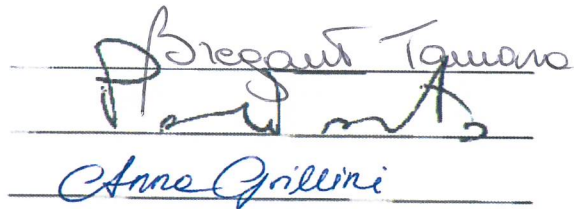 Bregant Tamara
Anna Grillini